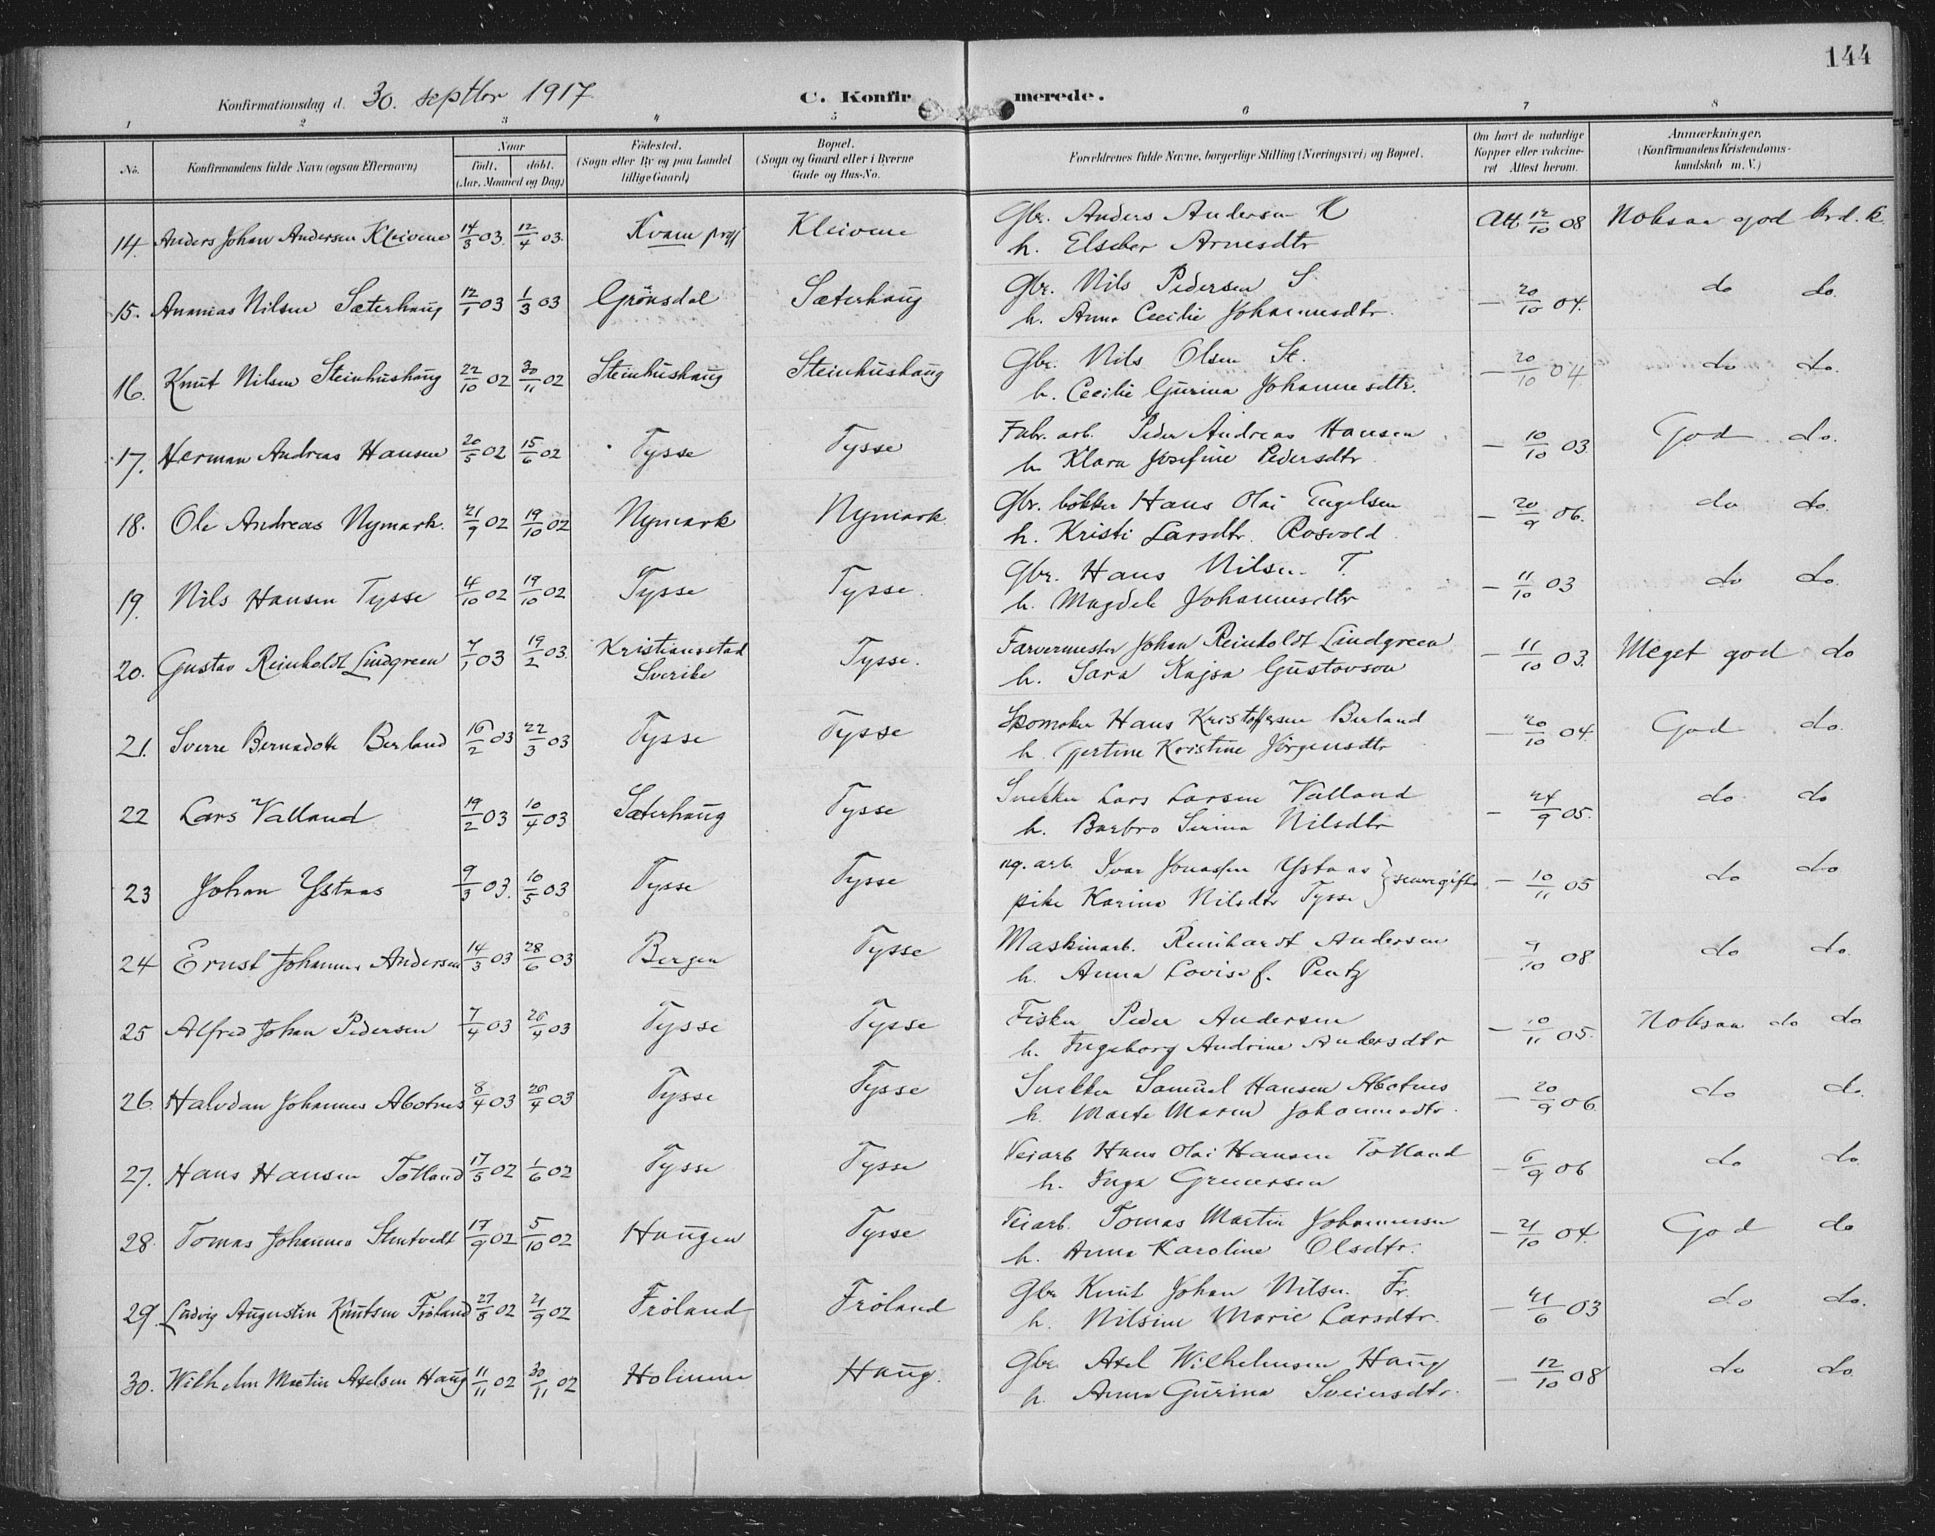 144
Konfirmationsdag d. 30. septbr 1917 C. Konfirmerede.
1 2 3 4 5 6 7 8
No. Konfirmandens fulde Navn (ogsaa Efternavn) Naar født. døbt. (Aar, Maaned og Dag) Fødested. (Sogn eller By og paa Landet tillige Gaard) Bopæl. (Sogn og Gaard eller i Byerne Gade og Hus-No. Forældrenes fulde Navne, borgerlige Stilling (Næringsvei) og Bopæl. Om havt de naturlige Kopper eller vaccineret Attest herom. Anmærkninger. (Konfirmandens Kristendomskundskab m. V.)
14. Anders Johan Andersen Kleivene 14/3 03. 12/4 03. Kvam prgj Kleivene Gbr. Anders Andersen K Att. 12/10 08 Noksaa god
h. Elseber Arnesdtr
15. Ananias Nilsen Sæterhaug 12/1 03 1/3 03 Grönsdal Sæterhaug Gbr. Nils Pedersen S. — 20/10 04. do do.
h. Anna Cecilie Johannesdtr.
16. Knut Nilsen Steinhushaug 22/10 02 30/11 02 Steinhushaug Steinhushaug Gbr. Nils Olsen St. — 20/10 04 do do.
h. Cecilie Gurina Johannesdtr.
17. Herman Andreas Hansen 20/5 02 15/6 02 Tysse Tysse Fabr. arb. Peder Andreas Hansen — 10/10 03 God do.
h Klara Josefine Pedersdtr
18. Ole Andreas Nymark. 21/9 02 19/10 02 Nymark Nymark. Gbr. bökker Hans Olai Engelsen — 20/9 06. do do.
h. Kristi Larsdtr. Rosvold
19. Nils Hansen Tysse 4/10 02 19/10 02 Tysse Tysse. Gbr. Hans Nilsen T. — 11/10 03 do do.
h. Magdele Johannesdtr
20. Gustav Reinholdt Lindgreen 7/1 03 19/2 03. Kristiansstad Sverike Tysse. Farvermester Johan Reinholdt Lindgreen — 11/10 03. Meget god do
h. Sara Kajsa Gustavson
21. Sverre Bernadotte Berland 16/2 03 22/3 03 Tysse Tysse Skomaker Hans Kristoffersen Berland — 20/10 04. God do.
h. Gjertine Kristine Jörgensdtr
22 Lars Valland 19/2 03 10/4 03 Sæterhaug Tysse Snekker Lars Larsen Valland — 24/9 05. do do
h. Barbro Serina Nilsdtr
23 Johan Ystaas 9/3 03. 10/5 03 Tysse Tysse ug. arb. Ivar Jonassen Ystaas } senere gifte — 10/11 05 do do
pike Karina Nilsdtr Tysse
24 Ernst Johannes Andersen 14/3 03 28/6 03 Bergen Tysse Maskinarb. Reinhardt Andersen 9/10 08 do do.
h. Anna Lovise f. Pentz
25 Alfred Johan Pedersen 7/4 03 26/4 03 Tysse Tysse Fisker Peder Andersen — 10/11 05. Noksaa do do
h. Ingeborg Andrine Andersdtr
26 Halvdan Johannes Abotnes 8/4 03 26/4 03 Tysse Tysse Snekker Samuel Hansen Abotnes — 20/9 06 do do.
h. Marta Maren Johannesdtr.
27. Hans Hansen Totland 17/5 02 1/6 02 Tysse Tysse Veiarb Hans Olai Hansen Totland — 6/9 06 do do.
h. Inga Grenersen
28. Tomas Johannes 17/9 02 5/10 02 Haugen Tysse Veiarb. Tomas Martin Johannessen — 21/10 04. God do
h. Anna Karoline Olsdtr.
29. Ludvig Augustin Knutsen Fröland 27/8 02 21/9 02 Fröland Fröland Gbr Knut Johan Nilsen Fr. — 21/6 03 do do.
h. Nilsine Marie Larsdtr.
30. Wilhelm Martin Axelsen Haug 11/11 02 30/11 02 Holmene Haug. Gbr. Axel Wilhelmsen Haug — 12/10 08 do do.
h. Anna Gurina Sveinsdtr.